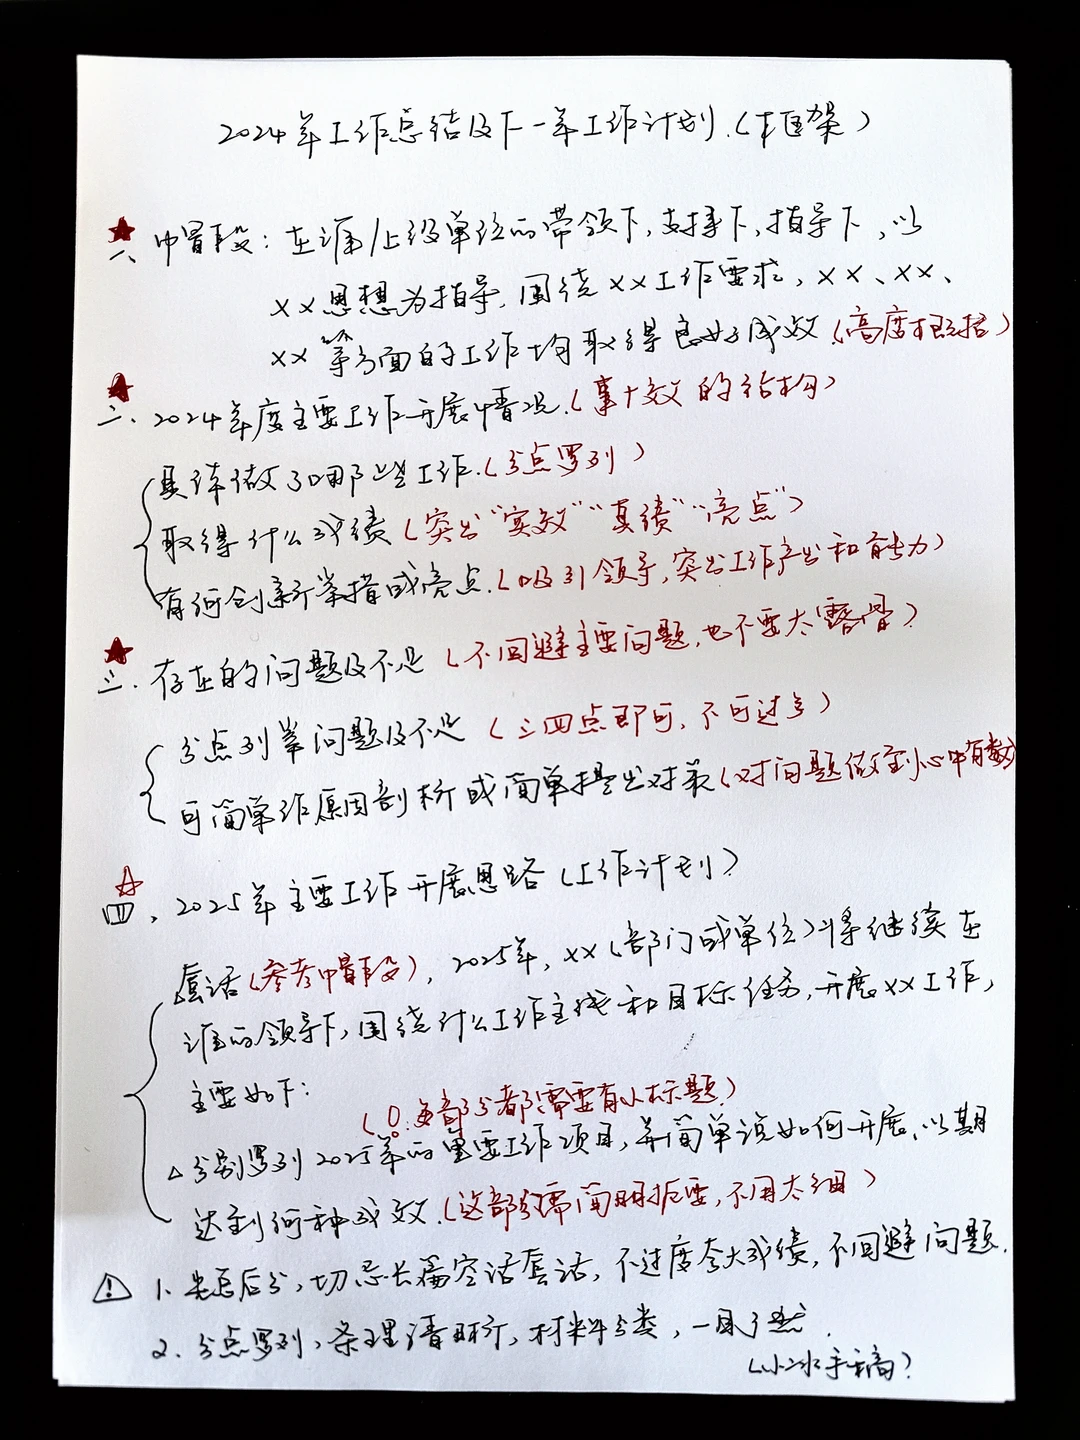 2024年工作总结及下一年工作计划.(丰框架)
一、帽段:在谁/上级单位的带领下,支持下,指导下,以
XX思想为指导,围绕XX工作要求,XX、XX、
XX等方面的工作均取得良好成效(高度概括)
二、2024年度主要工作开展情况.(事+效的结构)
具体做了哪些工作.(分点罗列)
取得什么成绩(突出“实效”“真绩”“亮点”)
有何创新举措或亮点.(吸引领导,突出工作产出和能力)
三、存在的问题及不足(不回避主要问题,也不要太露骨)
分点列举问题及不足(三四点即可,不可过多)
可简单作原因剖析或简单提出对策(对问题做到心中有数)
四、2025年主要工作开展思路(工作计划)
套话(参考帽段),2025年,XX(部门或单位)将继续在
谁的领导下,围绕什么工作主线和目标任务,开展XX工作,
主要如下:
(每部分都需要有小标题)
△分别罗列2025年的重要工作项目,并简单说如何开展,以期
达到何种成效.(这部分需简明扼要,不用太细)
1、先总后分,切忌长篇空话套话,不过度夸大成绩,不回避问题.
2、分点罗列,条理清晰,材料分类,一目了然.
(小冰手稿)